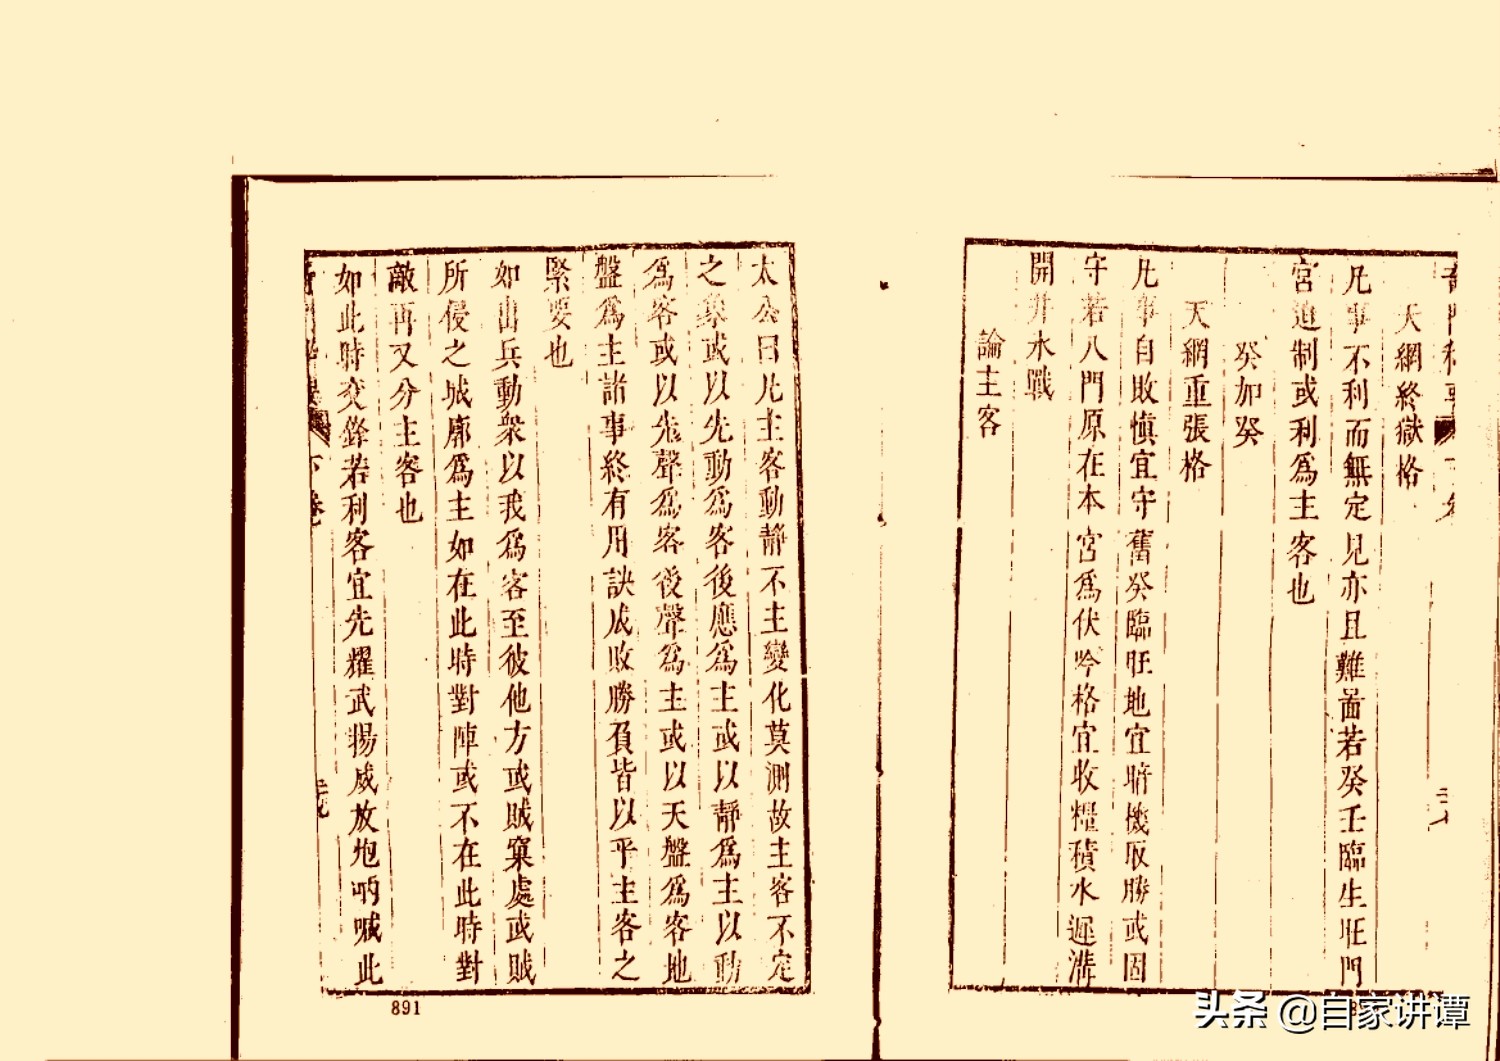 天網終獄格
凡事不利而無定見亦且難啚若癸壬臨生旺門
宮迫制或利為主客也
癸加癸
天網重張格
凡事自敗慎宜守舊癸臨旺地宜暗機取勝或固
守若八門原在本宮為伏吟格宜收糧積水運溝
開井水戰
論主客
太公曰凡主客動靜不主變化莫測故主客不定
之象或以先動為客後應為主或以靜為主以動
為客或以先聲為客後聲為主或以天盤為客地
盤為主諸事終有用訣成敗勝負皆以乎主客之
緊要也
如出兵動衆以我為客至彼他方或賊窠處或賊
所侵之城廓為主如在此時對陣或不在此時對
敵再又分主客也
如此時交鋒若利客宜先耀武揚威放炮吶喊此
下卷
891
头条 @自家讲谭